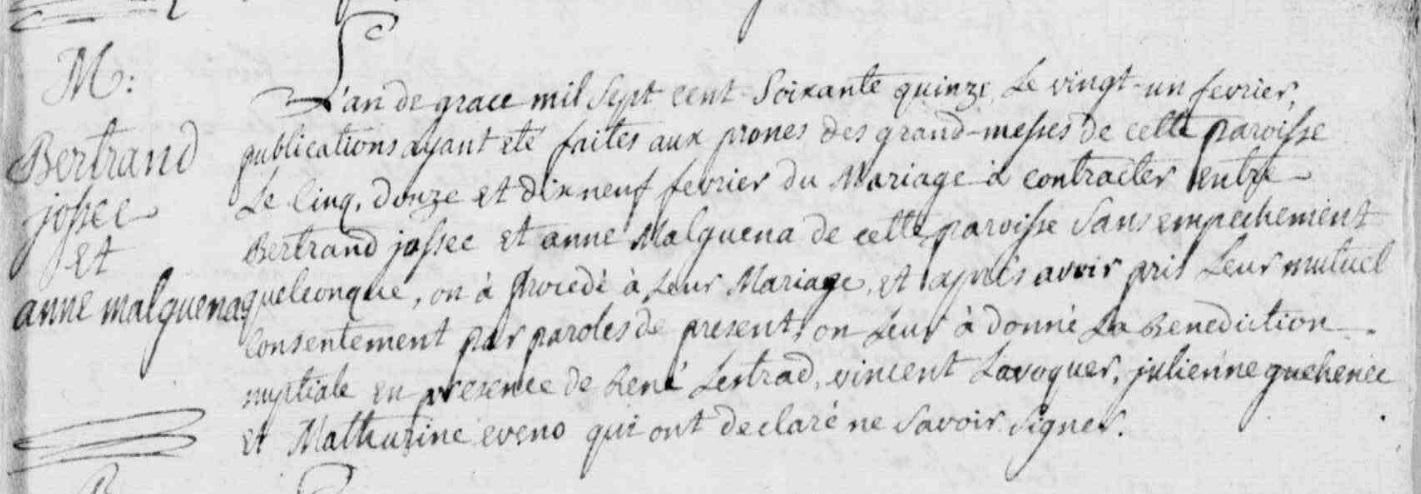 M:
Bertrand
jossee
et
anne malquena
L'an de grace mil sept cent soixante quinze, le vingt-un fevrier,
publications ayant eté faites aux prones des grand-messes de cette paroisse
Le cinq, douze et dix neuf fevrier du Mariage à contracter entre
Bertrand jossee et anne Malquena de cette paroisse sans empechement
quelconque, on à procedé à Leur Mariage, et après avoir pris Leur mutuel
consentement par paroles de present, on Leur à donné La Benediction
nuptiale en presence de René Lestrad, vincent Lavoquer, julienne guehenée
et Mathurine eveno qui ont declaré ne savoir signer.